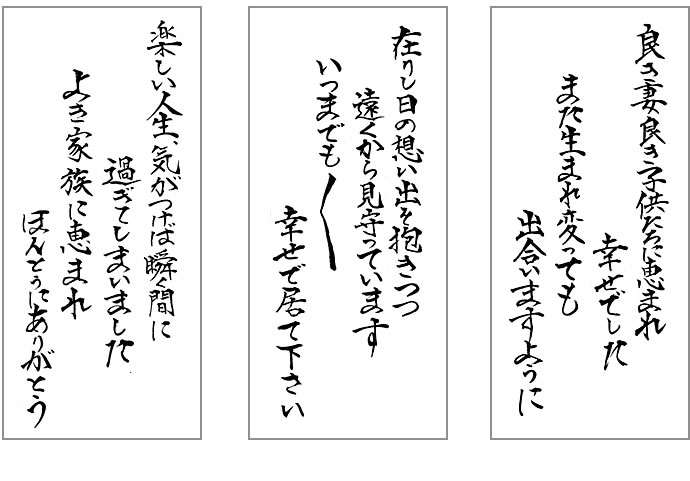 良き妻良き子供たちに恵まれ
幸せでした
また生まれ変っても
出合いますように
在りし日の想い出を抱きつつ
遠くから見守っています
いつまでも〳〵
幸せで居て下さい
楽しい人生、気がつけば瞬く間に
過ぎてしまいました
よき家族に恵まれ
ほんとうにありがとう